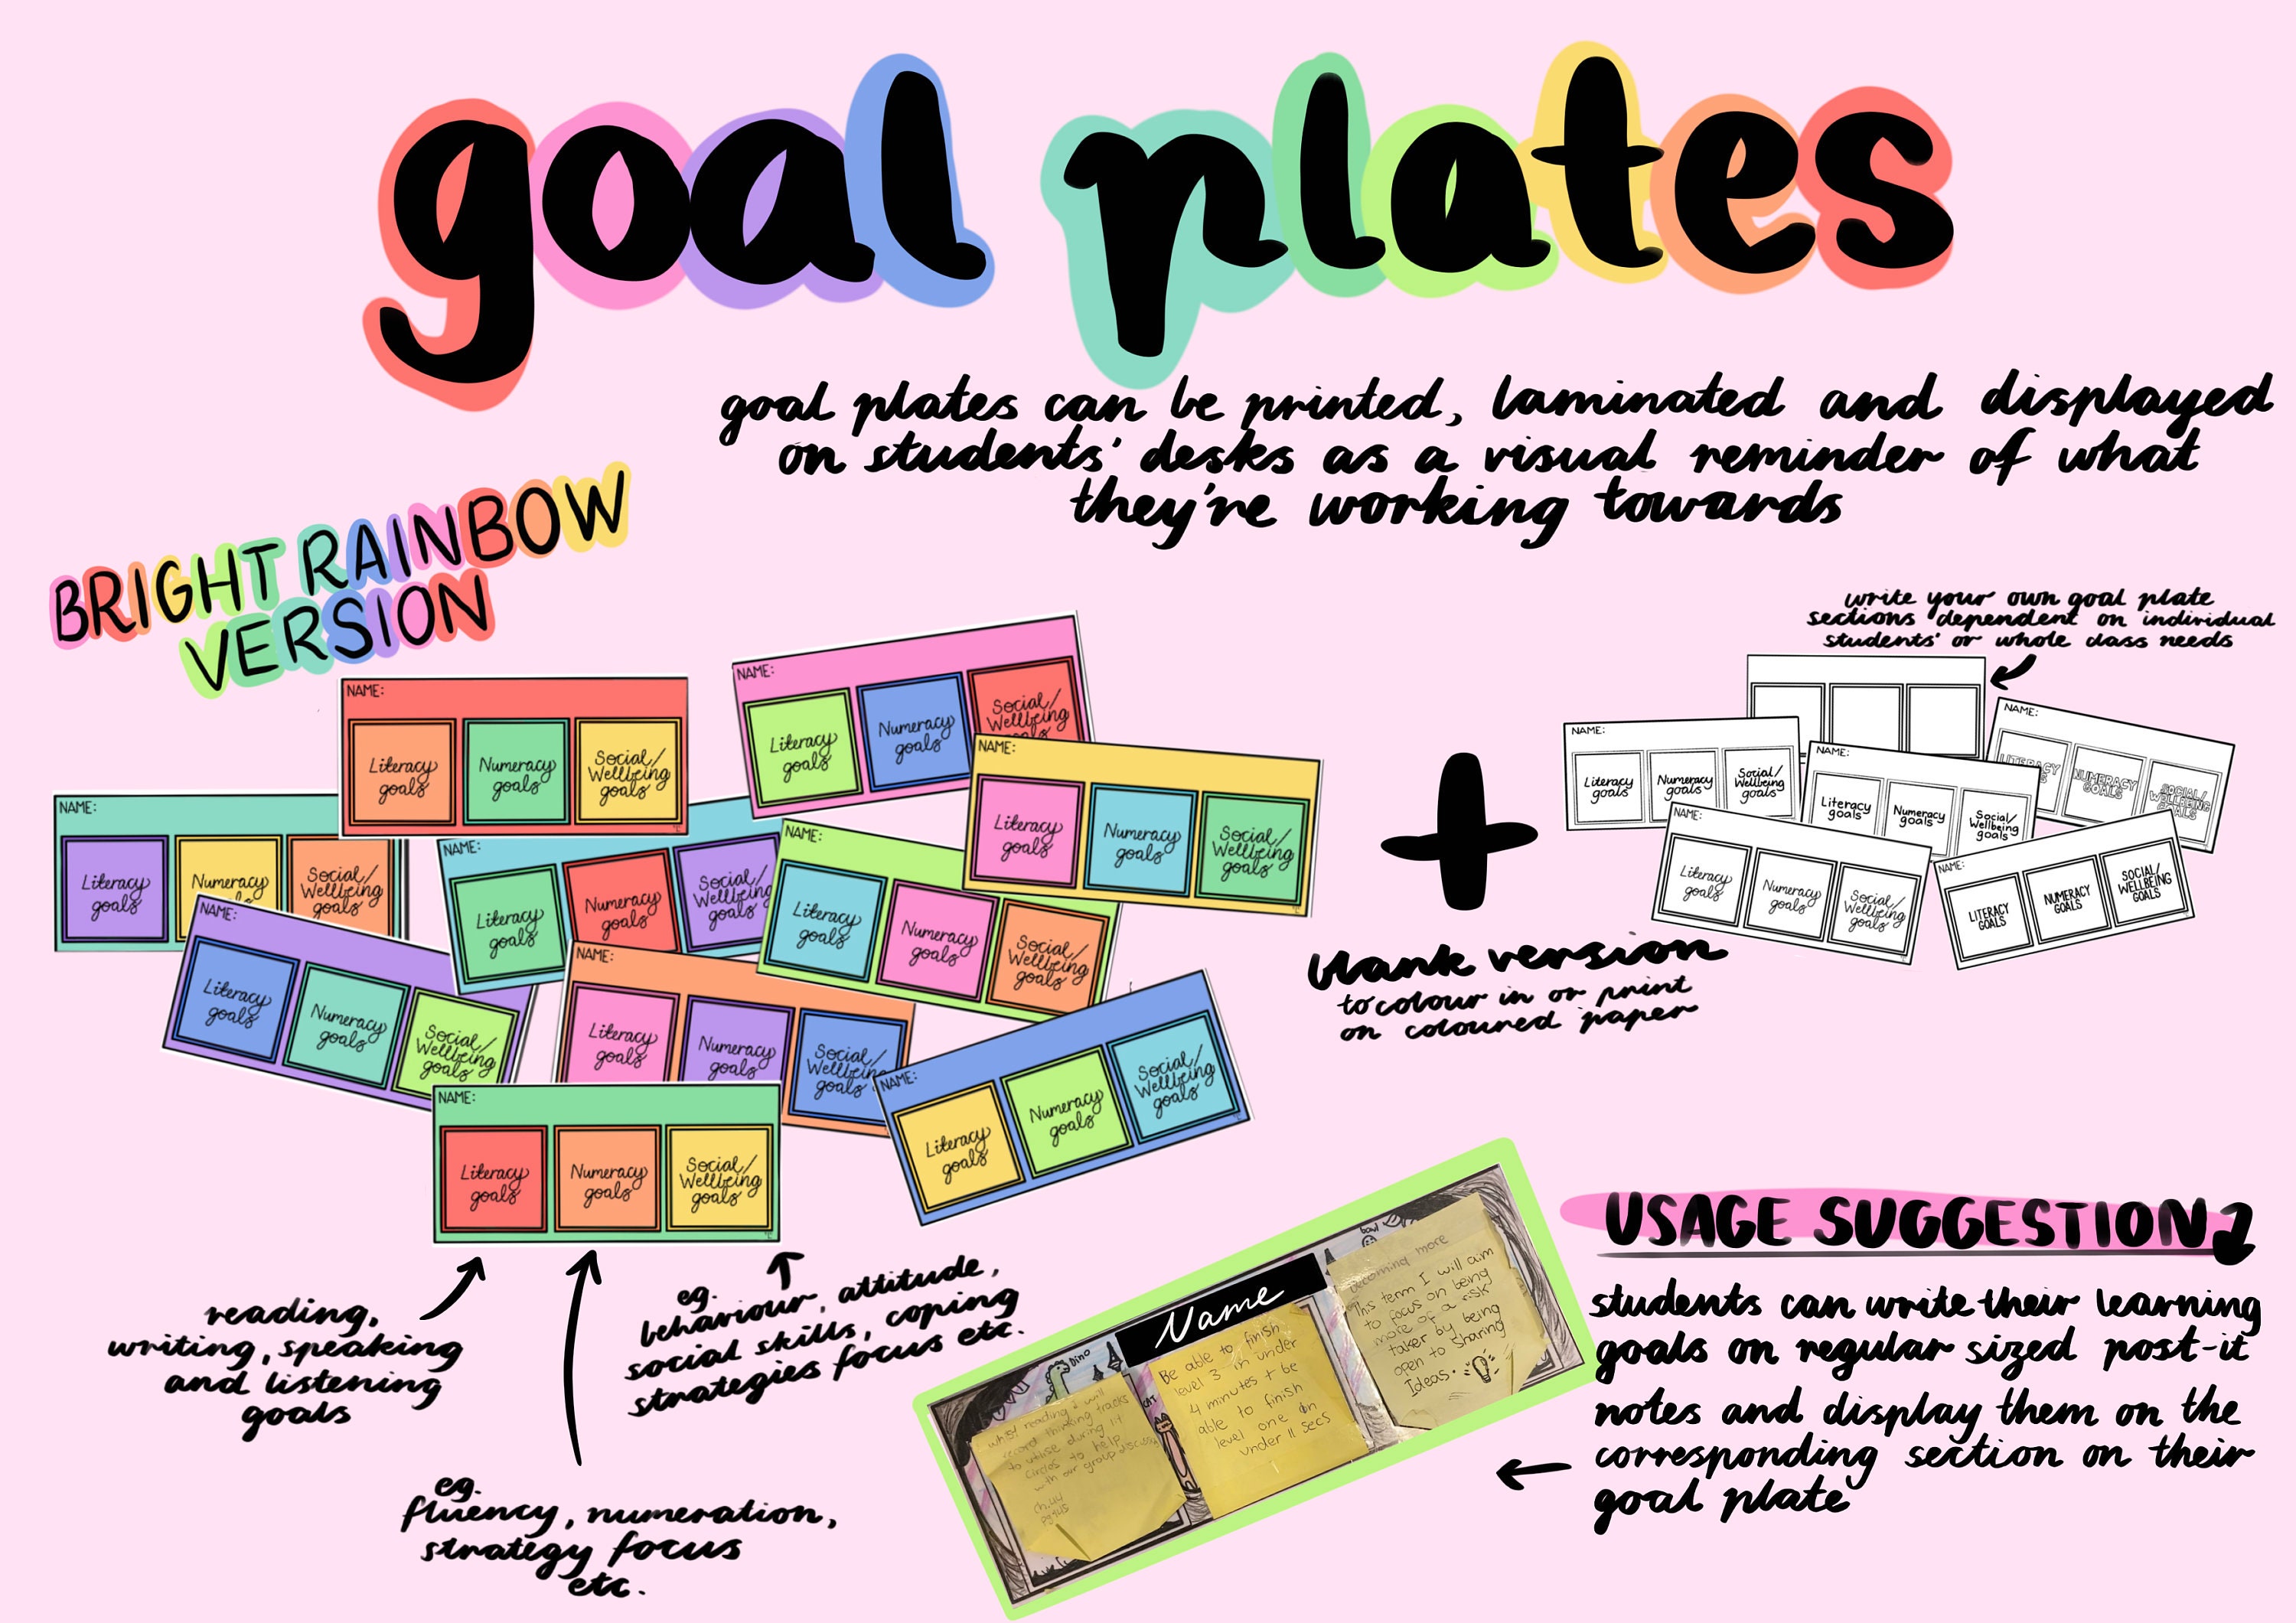 goal plates
goal plates can be printed, laminated and displayed
on students' desks as a visual reminder of what
they're working towards
BRIGHT RAINBOW
VERSION
write your own goal plate
sections dependent on individual
students' or whole class needs
NAME:
Literacy
goals
Numeracy
goals
Social/
Wellbeing
goals
NAME:
Literacy
goals
Numeracy
goals
Social/
Wellbeing
goals
NAME:
Literacy
goals
Numeracy
goals
Social/
Wellbeing
goals
NAME:
Literacy
goals
Numeracy
Social/
Wellbeing
goals
NAME:
Literacy
goals
Numeracy
goals
Social/
Wellbeing
goals
NAME:
Literacy
goals
Numeracy
goals
Social/
Wellbeing
goals
NAME:
Literacy
goals
Numeracy
goals
Social/
Wellbeing
goals
NAME:
Literacy
goals
Numeracy
goals
Social/
Wellbeing
goals
NAME:
Literacy
goals
Numeracy
goals
Social/
Wellbeing
goals
NAME:
Literacy
goals
Numeracy
goals
Social/
Wellbeing
goals
+
NAME:
Literacy
goals
Numeracy
goals
Social/
Wellbeing
goals
NAME:
NUMERACY
GOALS
SOCIAL/
WELLBEING
GOALS
NAME:
Literacy
goals
Numeracy
goals
Social/
Wellbeing
goals
NAME:
Literacy
goals
Numeracy
goals
Social/
Wellbeing
goals
NAME:
LITERACY
GOALS
NUMERACY
GOALS
SOCIAL/
WELLBEING
GOALS
blank version
to colour in or print
on coloured paper
reading,
writing, speaking
and listening
goals
eg.
fluency, numeration,
strategy focus
etc.
eg.
behaviour, attitude,
social skills, coping
strategies focus etc.
Name
Dino
cat
bowl
whilst reading I will
record thinking tracks
to utilise during lit
circles to help
with our group discussion
ch.44
pg 945
Be able to finish
level 3 in under
4 minutes + be
able to finish
level one in
under 11 secs
becoming more
This term I will aim
to focus on being
more of a risk
taker by being
open to sharing
Ideas.
USAGE SUGGESTION
students can write their learning
goals on regular sized post-it
notes and display them on the
corresponding section on their
goal plate